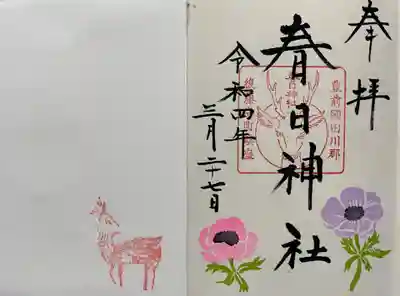 奉拝
春日神社
令和四年
三月二十七日
豊前國田川郡
春日神社